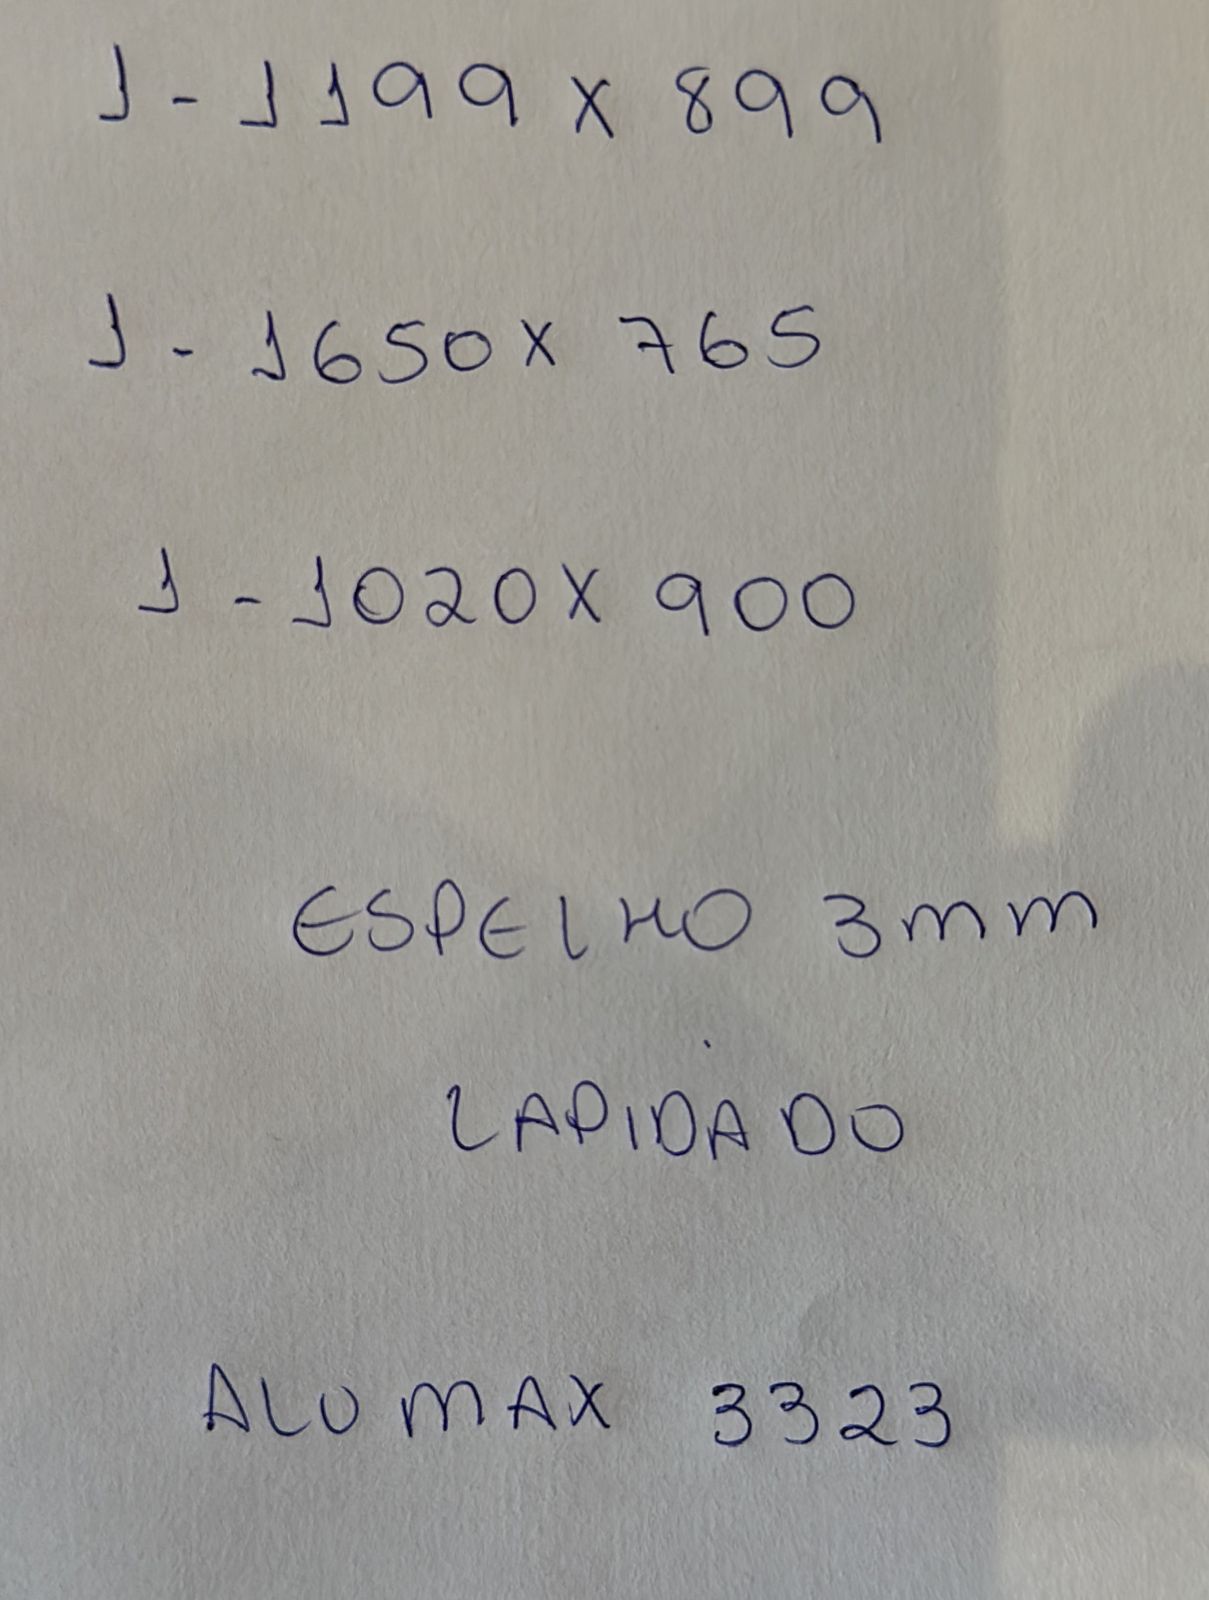 1 - 1199 x 899
1 - 1650 x 765
1 - 1020 x 900
ESPELHO 3mm
LAPIDADO
ALUMAX 3323